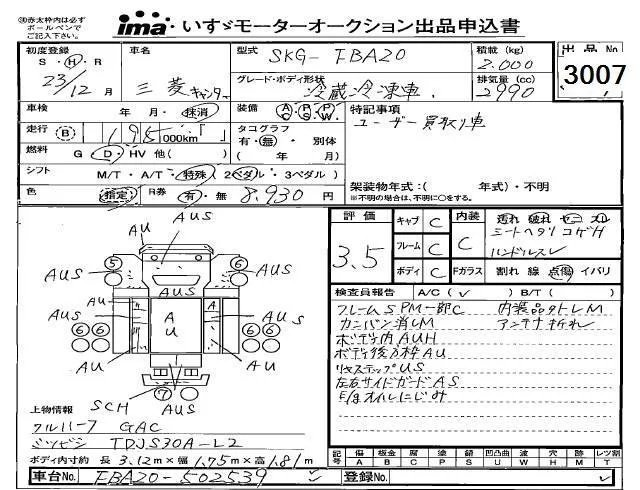 ㊟赤太枠内は必ず
ボールペンで
ご記入下さい。
ima いすゞモーターオークション出品申込書
初度登録 S・H・R 23/12 月
車名 三菱キャンター
型式 SKG-FBA20
積載 (kg) 2.000
出品No 3007
グレード・ボディ形状 冷蔵冷凍車.
排気量 (cc) 2990
車検 年 月・抹消
装備 AC PS PW
特記事項
ユーザー買取り車
走行 B 195 000km
タコグラフ 有・無・別体
( 年 月)
燃料 G D・HV 他( )
シフト M/T・A/T・特殊 (2ペダル・3ペダル)
架装物年式:( 年式)・不明
※不明の場合は、不明に○をする。
色 指定 R券 有・無 8,930 円
評価 3.5
キャブ C
フレーム C
ボディ C
内装 C
Fガラス
汚れ 破れ
シートヘタリ コゲH
ハンドルスレ
割れ 線 点傷 イバリ
検査員報告 A/C ( ✓ ) B/T ( )
フレームS PM一部C 内装品タトレM
カンバン消しM アンテナ折れ
ボディ内AUH
ボディ後方枠AU
リヤステップUS
左右サイドガードAS
E/gオイルにじみ
AUS
AU
5
6
AUS
AUS
AU
A
U
AUS
AUS
6 6
6 6
AU
AU
SCH
7
AUS
上物情報
クルハーフ GAC
ミツビシ TDJS30A-L2
ボディ内寸約 長 3.12m×幅 1.75m×高 1.81m
記号 傷 板金 腐 塗 鉄 US 凹凸曲 波 穴 跡 レツ割
A B C P S U W H M T
車台No. FBA20-502539 登録No.